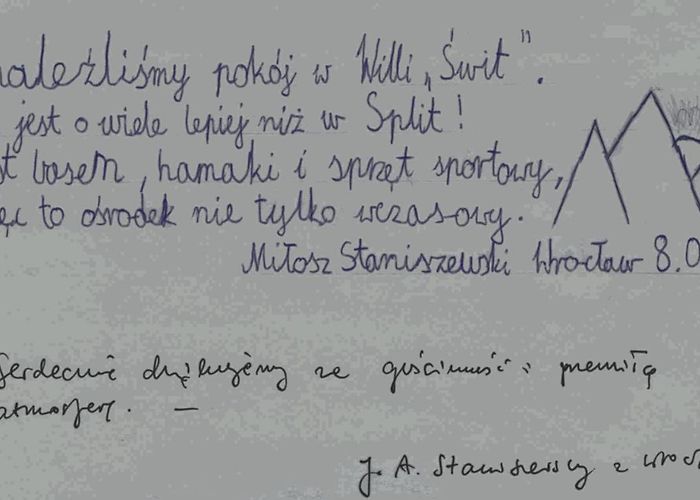 naleźliśmy pokój w Willi „Świt".
jest o wiele lepiej niż w Split!
st basem, hamaki i sprzęt sportowy,
ęc to ośrodek nie tylko wczasowy.
Miłosz Staniszewski Wrocław 8.0
Serdecznie dziękujemy za gościnność i przemiłą
atmosferę. —
J. A. Staniszewscy z Wroc